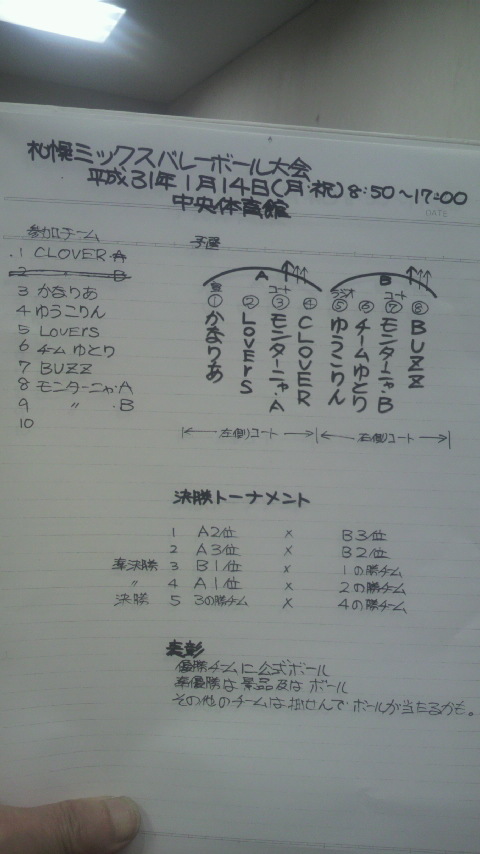 札幌ミックスバレーボール大会
平成31年1月14日(月・祝) 8:50〜17:00
中央体育館
DATE
参加チーム
1 CLOVER・A
3 かなりあ
4 ゆうこりん
5 LOVERS
6 チームゆとり
7 BUZZ
8 モンターニャ・A
9 〃 ・B
10
予選
A コート
B コート
ラジオ
① かなりあ
② LOVERS
③ モンターニャ・A
④ CLOVER
⑤ ゆうこりん
⑥ チームゆとり
⑦ モンターニャ・B
⑧ BUZZ
左側コート
右側コート
決勝トーナメント
1 A2位 × B3位
2 A3位 × B2位
準決勝 3 B1位 × 1の勝チーム
〃 4 A1位 × 2の勝チーム
決勝 5 3の勝チーム × 4の勝チーム
表彰
優勝チームに公式ボール
準優勝は景品及はボール
その他のチームは抽せんでボールが当たるかも。